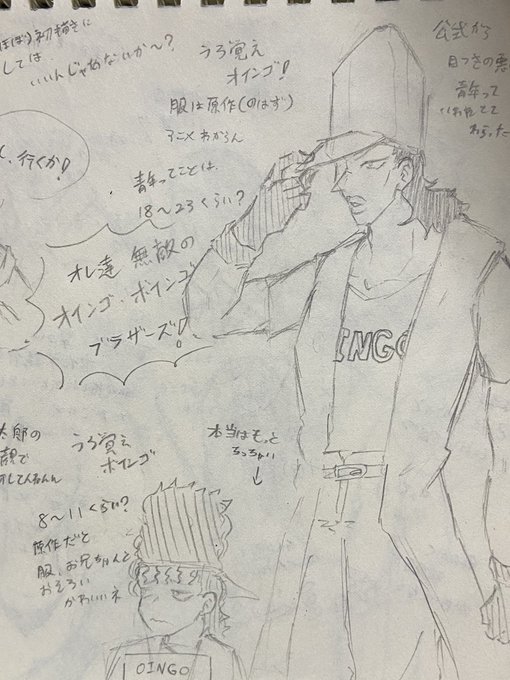 初描きに
しては
いいんじゃないか〜?
うろ覚え
オインゴ!
服は原作(のはず)
アニメわからん
青年ってことは
18〜23くらい?
公式から
目つきの悪
青年って
われた
行くか!
オレ達 無敵の
オインゴ・ボインゴ
ブラザーズ!
OINGO
太郎の
顔で
うろ覚え
ボインゴ
8〜11くらい?
原作だと
服、お兄ちゃんと
おそろい
かわいいネ
本当はもっと
ちっちゃい
OINGO